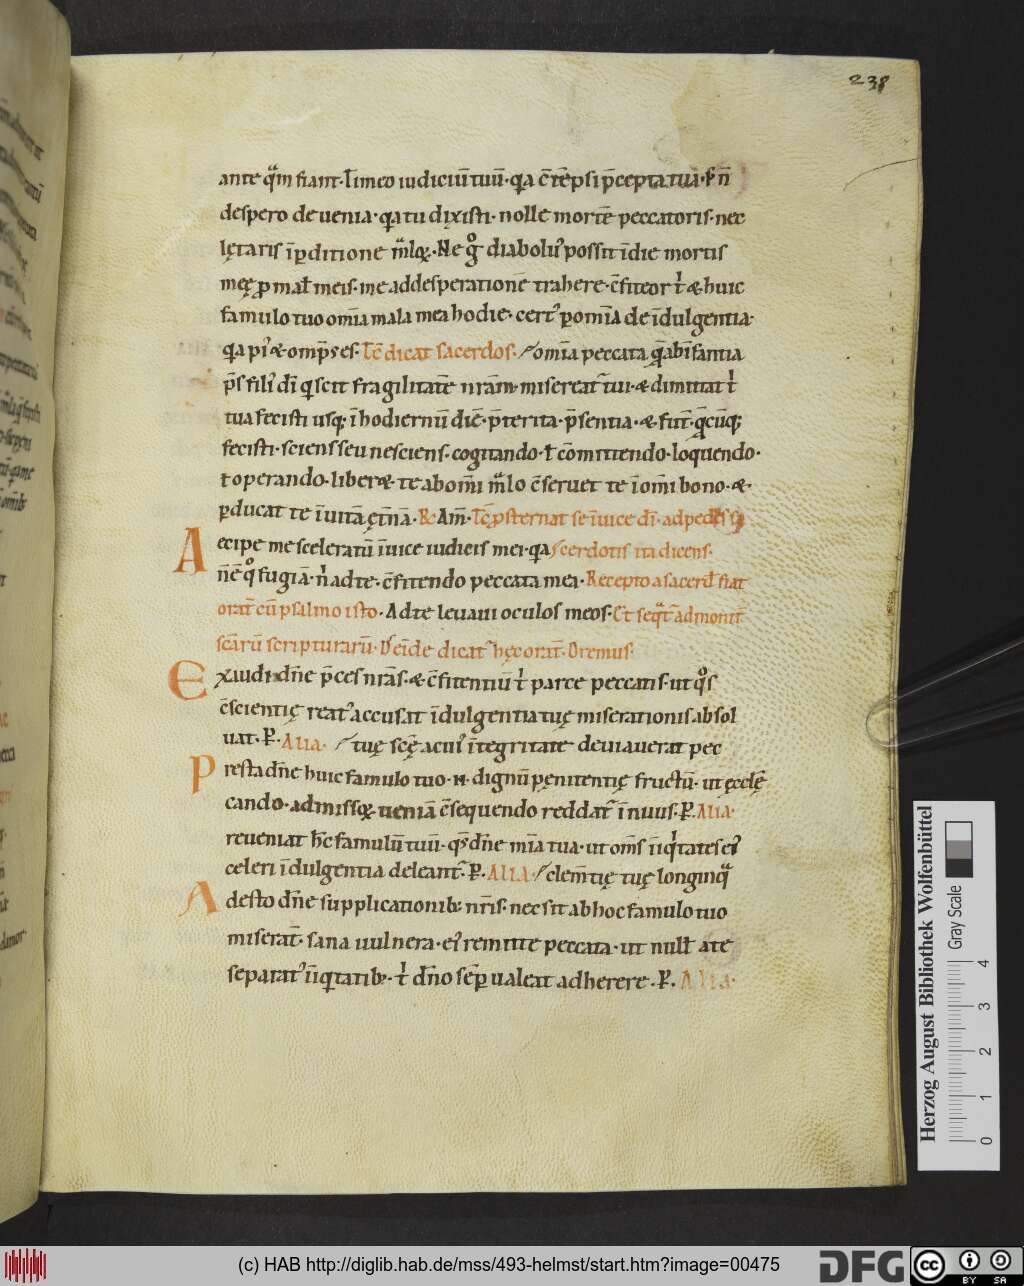 238
ante qᵃm fiant. Timeo iudiciū tuū. q̄a c̄tēpsi p̄cepta tua. s; n̄
despero de uenia. q̄a tu dixisti. nolle mortē peccatoris. nec
lętaris ī ꝑditione mᵃloꝝ. Ne gᵒ diabolus possit ī die mortis
męę ꝓ mał meis. me ad desperationē trahere. c̄fiteor tⁱ & huic
famulo tuo om̄ia mala mea hodie. certꝰ ꝑ om̄ia de īdulgentia.
q̄a piꝰ & omp̄s es. Tc̄ dicat sacerdos. om̄ia peccata quę ab īfantia
p̄s filiꝰ di q scit fragilitatē nrām. misereatᵉ tui. & dimittat tⁱ
tua fecisti usq; ī hodiernū diē. p̄terita. p̄sentia. & fut̄. q̄cūq;
fecisti. sciens seu nesciens. cogitando. ł cōmittendo. loquendo.
ł operando. liberæ te ab om̄i mᵃlo c̄seruet te ī om̄i bono. &
ꝑducat te ī uitā ęt̄nā. R̄ Am̄. Tc̄ ꝓsternat se ī uice di. ad pedes
Accipe me sceleratū ī uice iudicis mei. q̄a sacerdotis ita dicens.
n̄ ē qᵒ fugiā. nⁱ ad te. c̄fitendo peccata mea. Recepto a sacerd̄ fiat
orat̄ cū psalmo isto. Ad te leuaui oculos meos. Et seqᵗ admonit̄
sc̄arū scripturarū. Deīde dicatᵉ hęc orat̄. Oremus.
Exaudi dn̄e p̄ces nrās. & c̄fitentiū tⁱ parce peccatis. ut qᵒs
c̄scientię reatꝰ accusat īdulgentia tuę miserationis absol
uat. ꝑ. Alia. tuę sc̄ę acui ītegritate deuiauerat pec
Presta dn̄e huic famulo tuo .N. dignū pęnitentię fructū. ut ęcclę
cando. admissoꝝ ueniā c̄sequendo reddatᵉ īnuus. ꝑ. Alia.
reueniat hc̄ famulū tuū. qs̄ dn̄e mīa tua. ut om̄s īiqⁱtates eiꝰ
celeri īdulgentia deleantᵉ. ꝑ. Alia. clem̄tię tuę longinqᵃ
Adesto dn̄e supplicationib; nrīs. nec sit ab hoc famulo tuo
miserat̄. sana uulnera. eiꝰ remitte peccata. ut null̄ a te
separatꝰ īiqⁱtatib; tⁱ dn̄o sēꝑ ualeat adherere. ꝑ. Alia.
Herzog August Bibliothek Wolfenbüttel
Gray Scale
0 1 2 3 4
(c) HAB http://diglib.hab.de/mss/493-helmst/start.htm?image=00475
DFG
cc BY SA